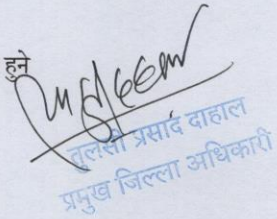 हुने
तुलसी प्रसाद दाहाल
प्रमुख जिल्ला अधिकारी